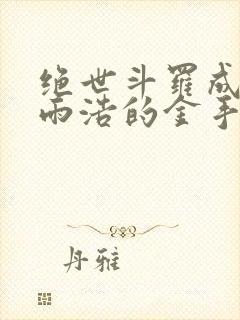 绝世斗罗成
雨浩的金手
丹雅